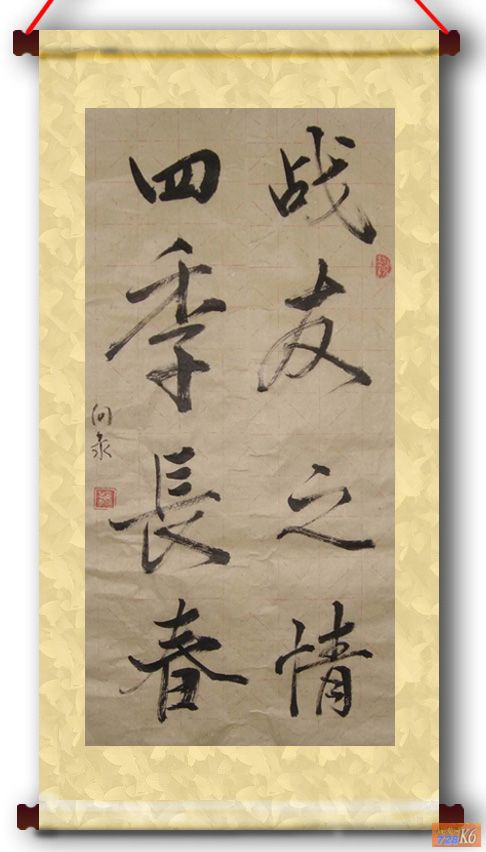 战友之情
四季長春
向泉
K6